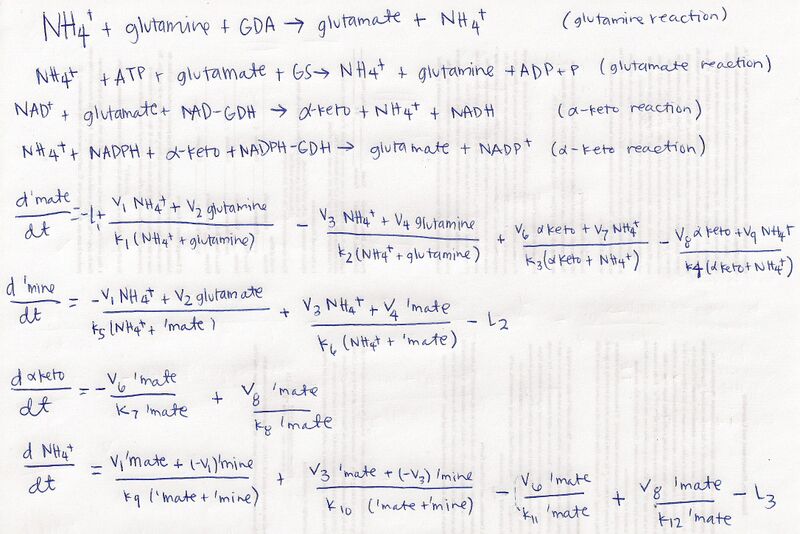 NH₄⁺ + glutamine + GDA → glutamate + NH₄⁺ (glutamine reaction)
NH₄⁺ + ATP + glutamate + GS → NH₄⁺ + glutamine + ADP + P (glutamate reaction)
NAD⁺ + glutamate + NAD-GDH → α-keto + NH₄⁺ + NADH (α-keto reaction)
NH₄⁺ + NADPH + α-keto + NADPH-GDH → glutamate + NADP⁺ (α-keto reaction)
d'mate/dt = -L₁ + (V₁ NH₄⁺ + V₂ glutamine)/(K₁(NH₄⁺ + glutamine)) - (V₃ NH₄⁺ + V₄ glutamine)/(K₂(NH₄⁺ + glutamine)) + (V₆ αketo + V₇ NH₄⁺)/(K₃(αketo + NH₄⁺)) - (V₈ αketo + V₉ NH₄⁺)/(K₄(αketo + NH₄⁺))
d'mine/dt = (-V₁ NH₄⁺ + V₂ glutamate)/(K₅(NH₄⁺ + 'mate)) + (V₃ NH₄⁺ + V₄ 'mate)/(K₆(NH₄⁺ + 'mate)) - L₂
dαketo/dt = -(V₆ 'mate)/(K₇ 'mate) + (V₈ 'mate)/(K₈ 'mate)
d NH₄⁺/dt = (V₁'mate + (-V₁)'mine)/(K₉('mate + 'mine)) + (V₃ 'mate + (-V₃)'mine)/(K₁₀ ('mate + 'mine)) - (V₆ 'mate)/(K₁₁ 'mate) + (V₈ 'mate)/(K₁₂ 'mate) - L₃